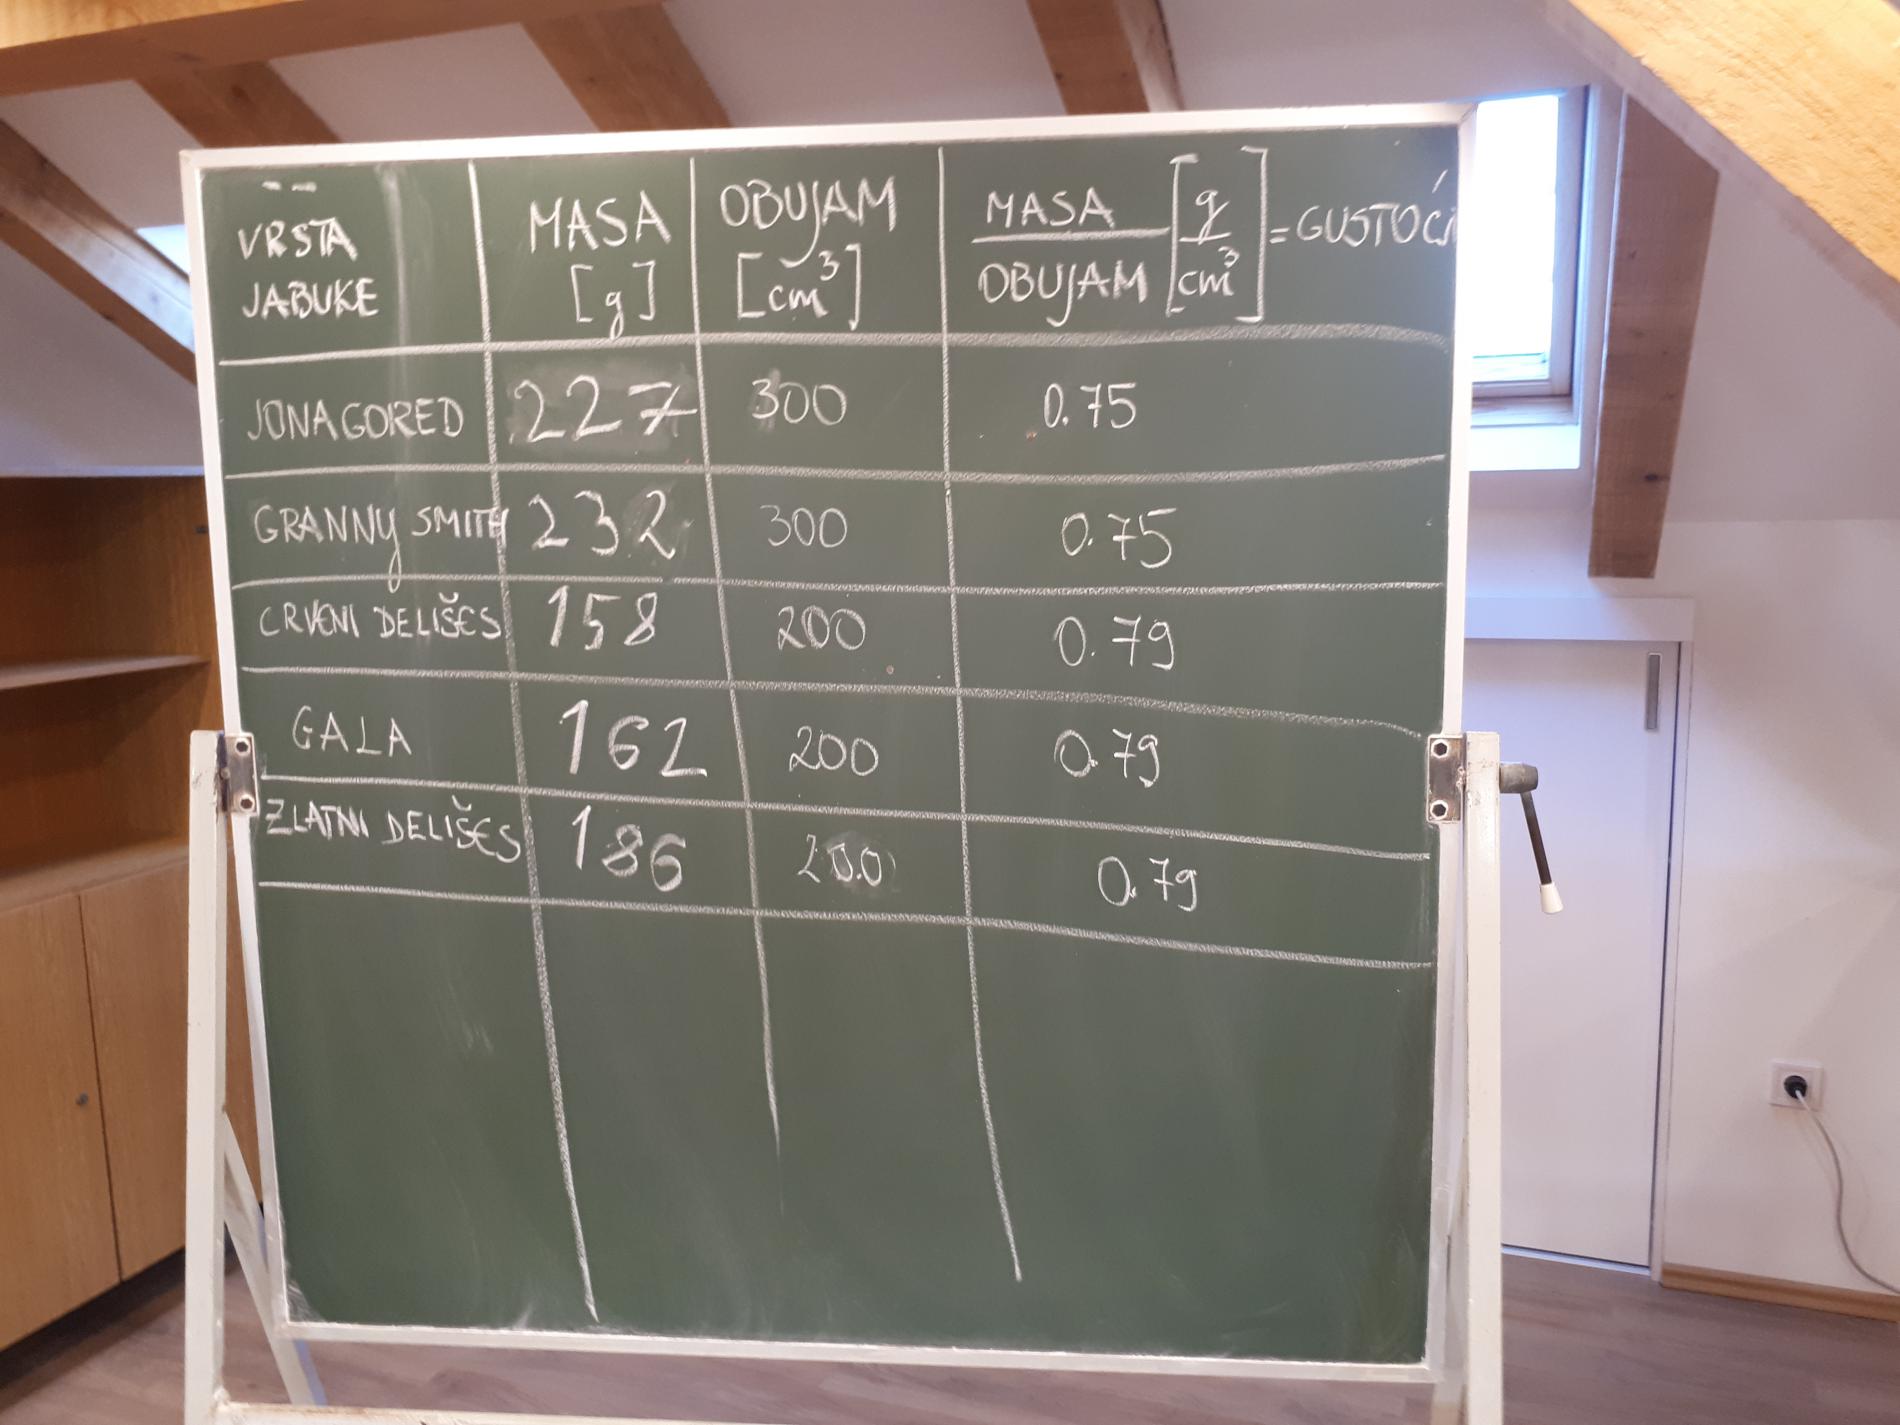 VRSTA JABUKE
MASA [g]
OBUJAM [cm³]
MASA / OBUJAM [g/cm³] = GUSTOĆA
JONAGORED 227 300 0.75
GRANNY SMITH 232 300 0.75
CRVENI DELIŠES 158 200 0.79
GALA 162 200 0.79
ZLATNI DELIŠES 186 200 0.79